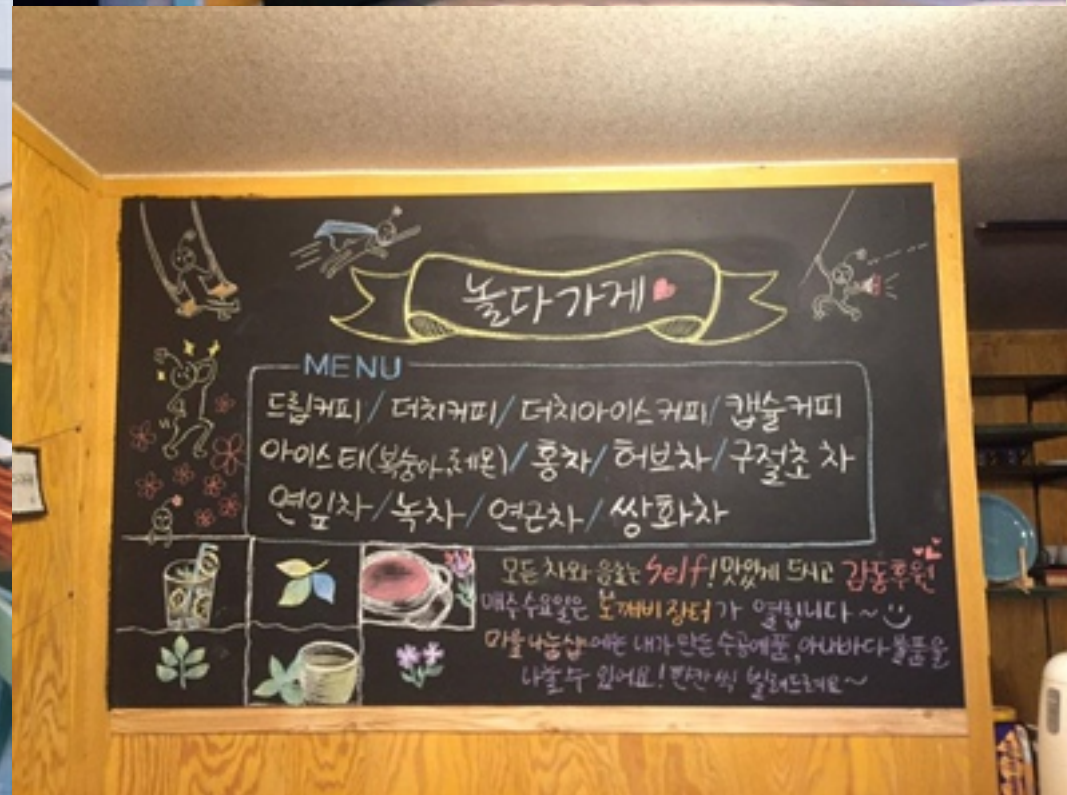 놀다가게
MENU
드립커피 / 더치커피 / 더치아이스커피 / 캡슐커피
아이스티(복숭아, 레몬) / 홍차 / 허브차 / 구절초 차
연잎차 / 녹차 / 연근차 / 쌍화차
모든 차와 음료는 Self! 맛있게 드시고 감동후원
매주 수요일은 도깨비장터가 열립니다~
마을나눔샵에는 내가 만든 수공예품, 아나바다 물품을
나눌 수 있어요! 한칸씩 빌려드려요~